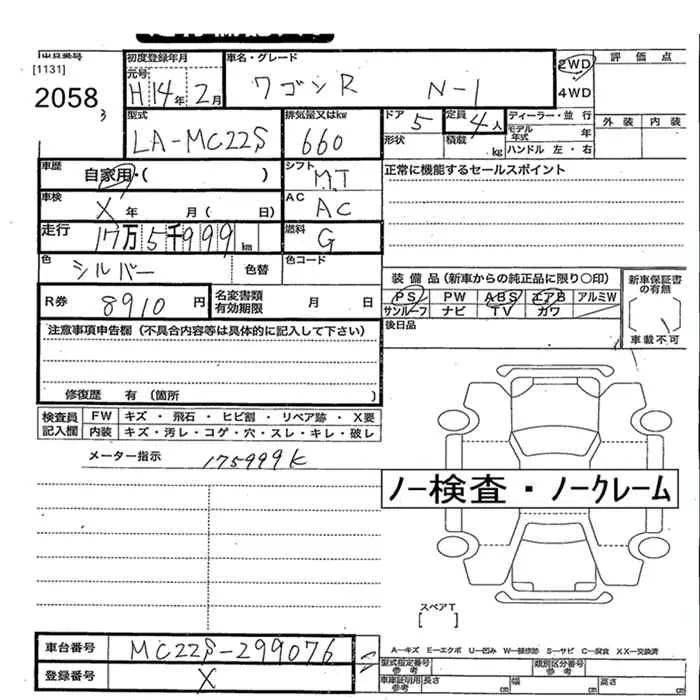 [1131]
2058 3
初度登録年月
元号
H14年2月
車名・グレード
ワゴンR N-1
2WD
4WD
評価点
外装 内装
型式
LA-MC22S
排気量又はkw
660
ドア 5
形状
定員 4人
積載 kg
ディーラー・並行
モデル年式 年
ハンドル 左・右
車歴
自家用・( )
シフト
MT
正常に機能するセールスポイント
車検
X 年 月( 日)
AC
AC
走行
17万5千999km
燃料
G
色
シルバー
色替
色コード
R券 8910円
名変書類有効期限 月 日
装備品(新車からの純正品に限り○印)
PS PW ABS エアB アルミW
サンルーフ ナビ TV カワ
新車保証書の有無
車載不可
後日品
注意事項申告欄(不具合内容等は具体的に記入して下さい)
修復歴 有(箇所 )
検査員記入欄
FW キズ・飛石・ヒビ割・リペア跡・X要
内装 キズ・汚レ・コゲ・穴・スレ・キレ・破レ
メーター指示 175999K
ノー検査・ノークレーム
スペアT
[ ]
車台番号 MC22S-299076
登録番号 X
A-キズ E-エクボ U-凹み W-補修跡 S-サビ C-腐食 XX-交換済
型式指定番号 参考
類別区分番号 参考
車庫証明用参考 長さ cm 幅 cm 高さ cm